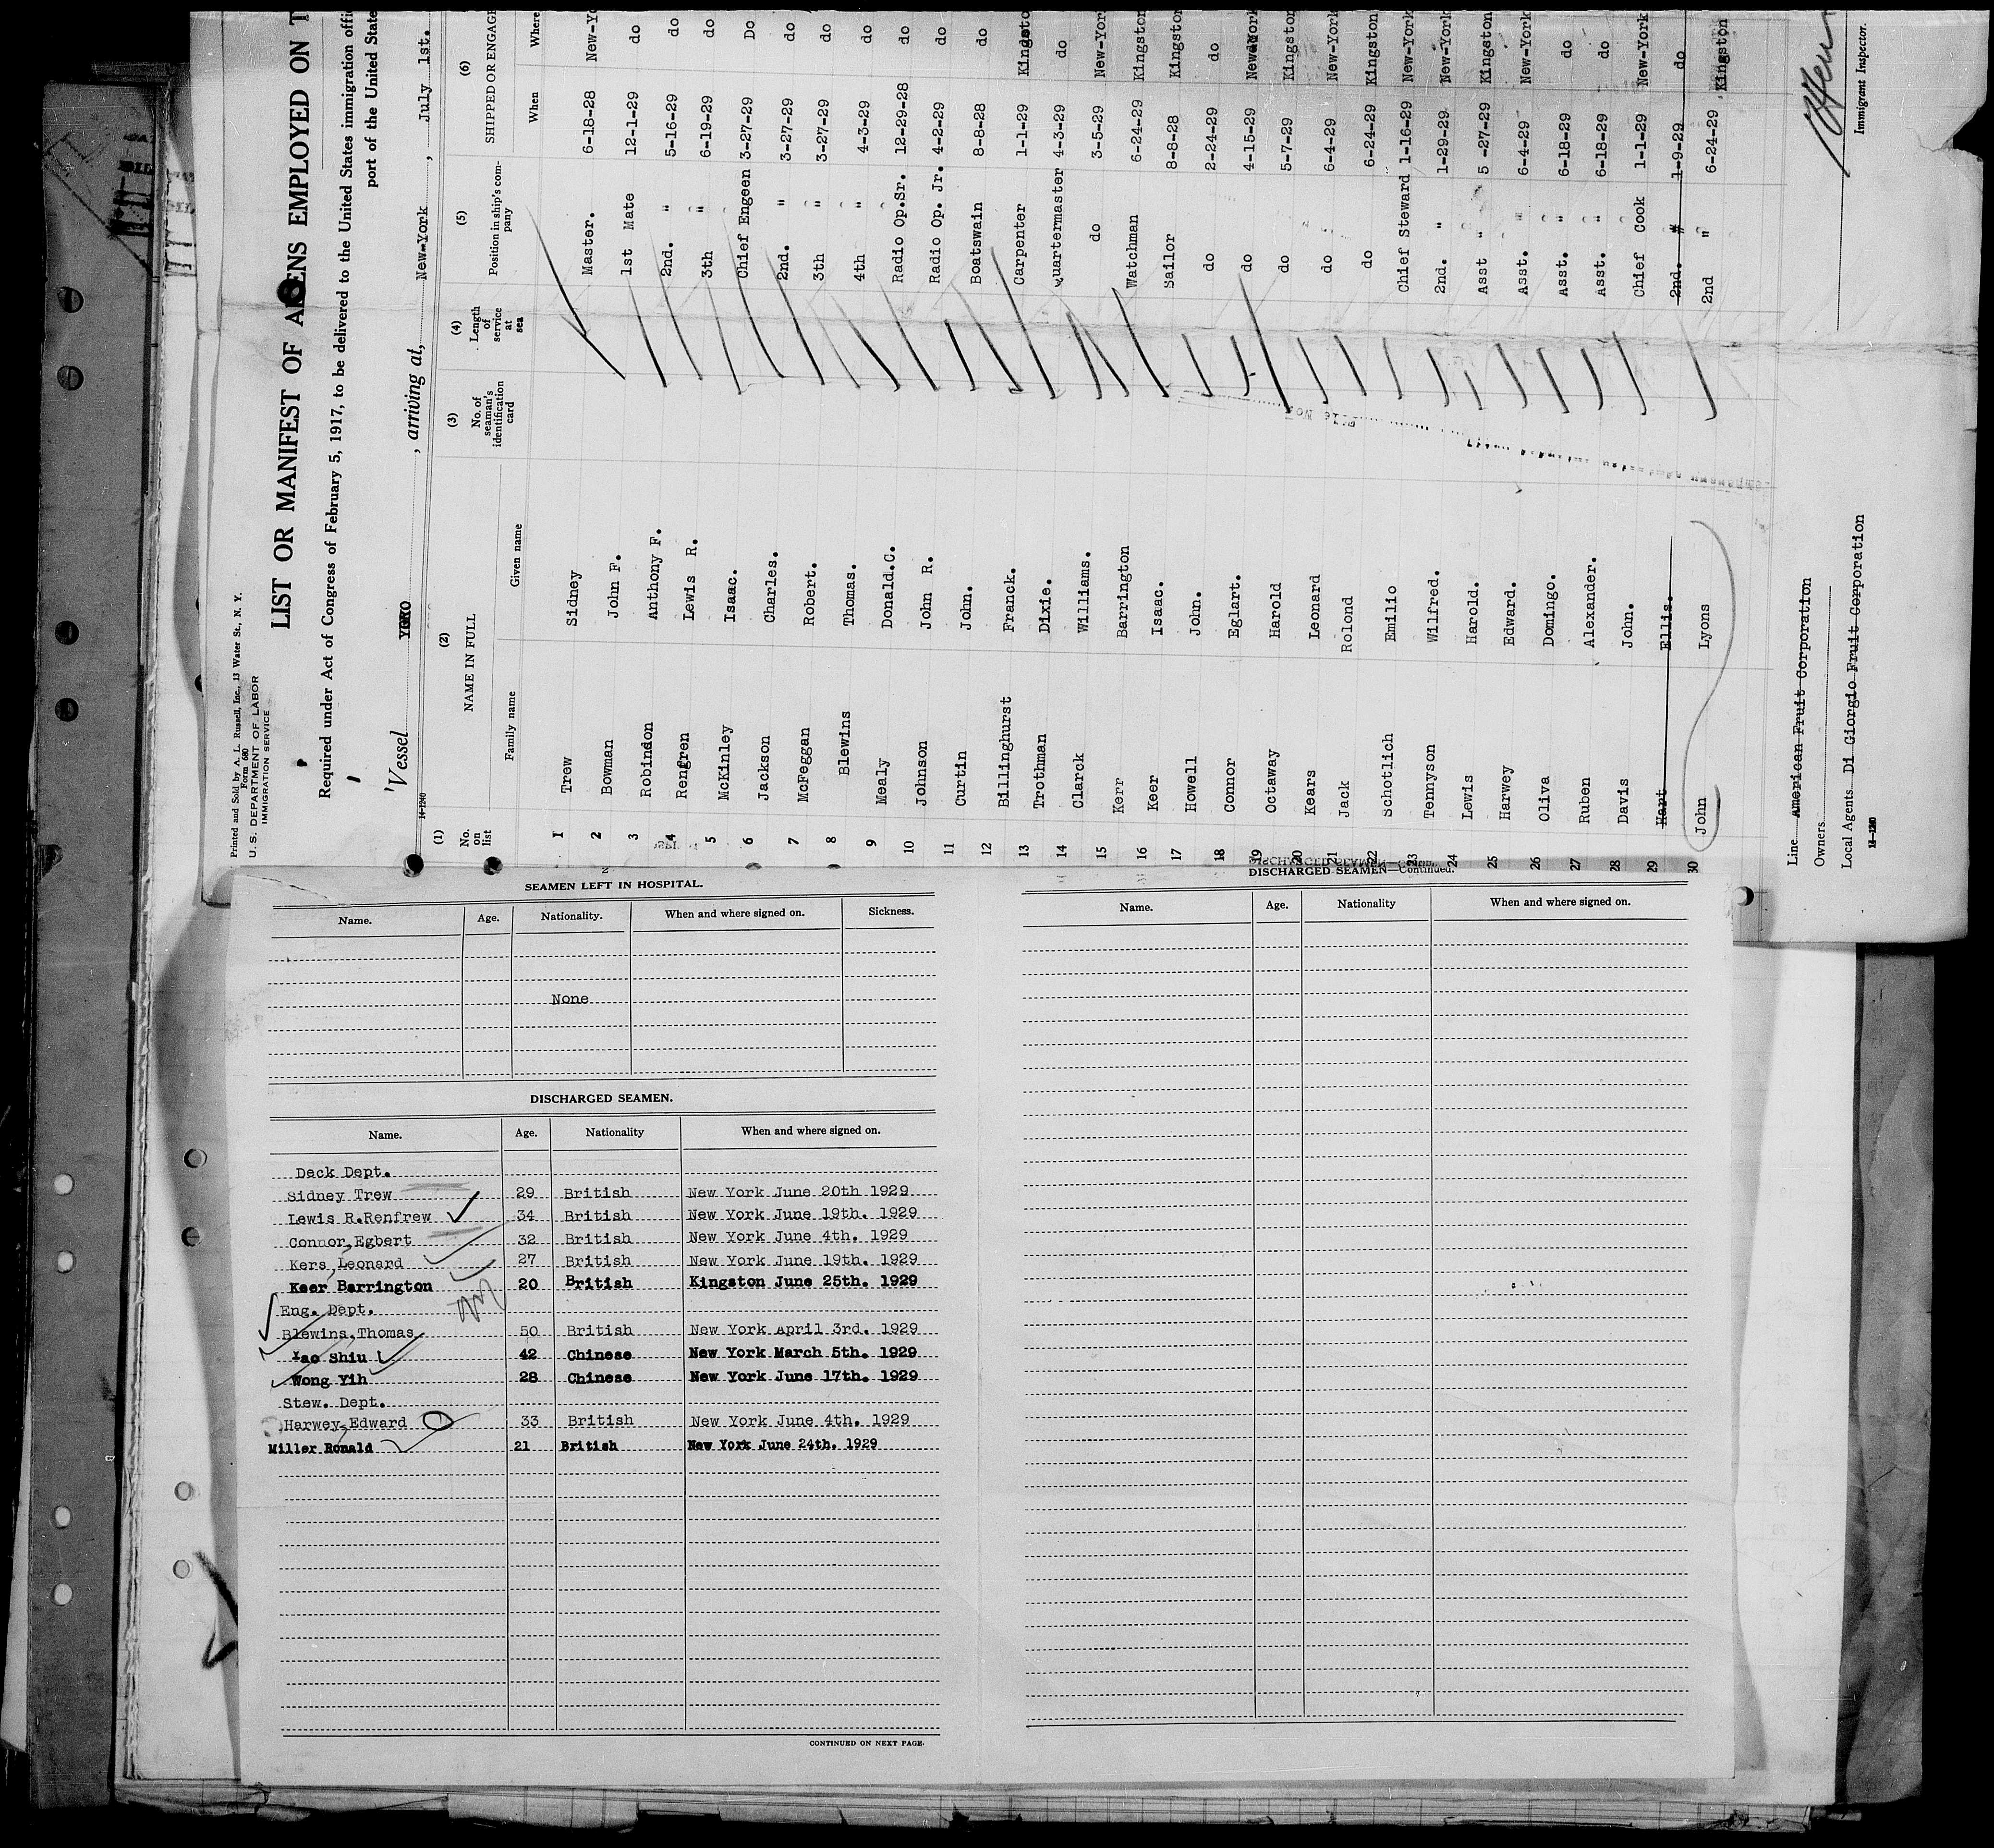 Printed and Sold by A. L. Russell, Inc., 13 Water St., N. Y.
Form 680
U. S. DEPARTMENT OF LABOR
IMMIGRATION SERVICE
LIST OR MANIFEST OF ALIENS EMPLOYED ON T
Required under Act of Congress of February 5, 1917, to be delivered to the United States immigration offi
port of the United State
Vessel , arriving at, New-York , July 1st.
14-1240
(1) (2) (3) (4) (5) (6)
No. on list NAME IN FULL No. of seaman's identification card Length of service at sea Position in ship's company SHIPPED OR ENGAGE
Family name Given name When Where
1 Trew Sidney Master. 6-18-28 New-Yo
2 Bowman John F. 1st Mate 12-1-29 do
3 Robindon Anthony F. 2nd. " 5-16-29 do
4 Rengren Lewis R. 3th " 6-19-29 do
5 McKinley Isaac. Chief Engeen 3-27-29 Do
6 Jackson Charles. 2nd. " 3-27-29 do
7 McFeggan Robert. 3th " 3-27-29 do
8 Blewins Thomas. 4th " 4-3-29 do
9 Mealy Donald.C. Radio Op.Sr. 12-29-28 do
10 Johnson John R. Radio Op. Jr. 4-2-29 do
11 Curtin John. Boatswain 8-8-28 do
12 Billinghurst Franck. Carpenter 1-1-29 Kingsto
13 Trothman Dixie. Quartermaster 4-3-29 do
14 Clarck Williams. do 3-5-29 New-Yor
15 Kerr Barrington Watchman 6-24-29 Kingston
16 Keer Isaac. Sailor 8-8-28 Kingston
17 Howell John. do 2-24-29 do
18 Connor Eglart. do 4-15-29 New-York
19 Octaway Harold do 5-7-29 Kingston
20 Kears Leonard do 6-4-29 New-York
21 Jack Rolond do 6-24-29 Kingston
22 Schotlich Emilio Chief Steward 1-16-29 New-York
23 Tennyson Wilfred. 2nd. " 1-29-29 New-York
24 Lewis Harold. Asst " 5-27-29 Kingston
25 Harwey Edward. Asst. " 6-4-29 New-York
26 Oliva Domingo. Asst. " 6-18-29 do
27 Ruben Alexander. Asst. " 6-18-29 do
28 Davis John. Chief Cook 1-1-29 New-York
29 Hart Ellis. 2nd. " 1-9-29 do
30 John Lyons 2nd " 6-24-29 Kingston
Line American Fruit Corporation
Owners
Local Agents Di Giorgio Fruit Corporation
14-1240
Immigrant Inspector.
SEAMEN LEFT IN HOSPITAL.
Name. Age. Nationality. When and where signed on. Sickness.
None
DISCHARGED SEAMEN.
Name. Age. Nationality When and where signed on.
Deck Dept.
Sidney Trew 29 British New York June 20th 1929
Lewis R.Renfrew 34 British New York June 19th. 1929
Connor,Egbert 32 British New York June 4th. 1929
Kers,Leonard 27 British New York June 19th. 1929
Keer Barrington 20 British Kingston June 25th. 1929
Eng. Dept.
Blewins,Thomas 50 British New York April 3rd. 1929
Yao Shiu 42 Chinese New York March 5th. 1929
Wong Yih 28 Chinese New York June 17th. 1929
Stew. Dept.
Harwey,Edward 33 British New York June 4th. 1929
Miller Ronald 21 British New York June 24th. 1929
CONTINUED ON NEXT PAGE.
DISCHARGED SEAMEN—Continued.
Name. Age. Nationality When and where signed on.